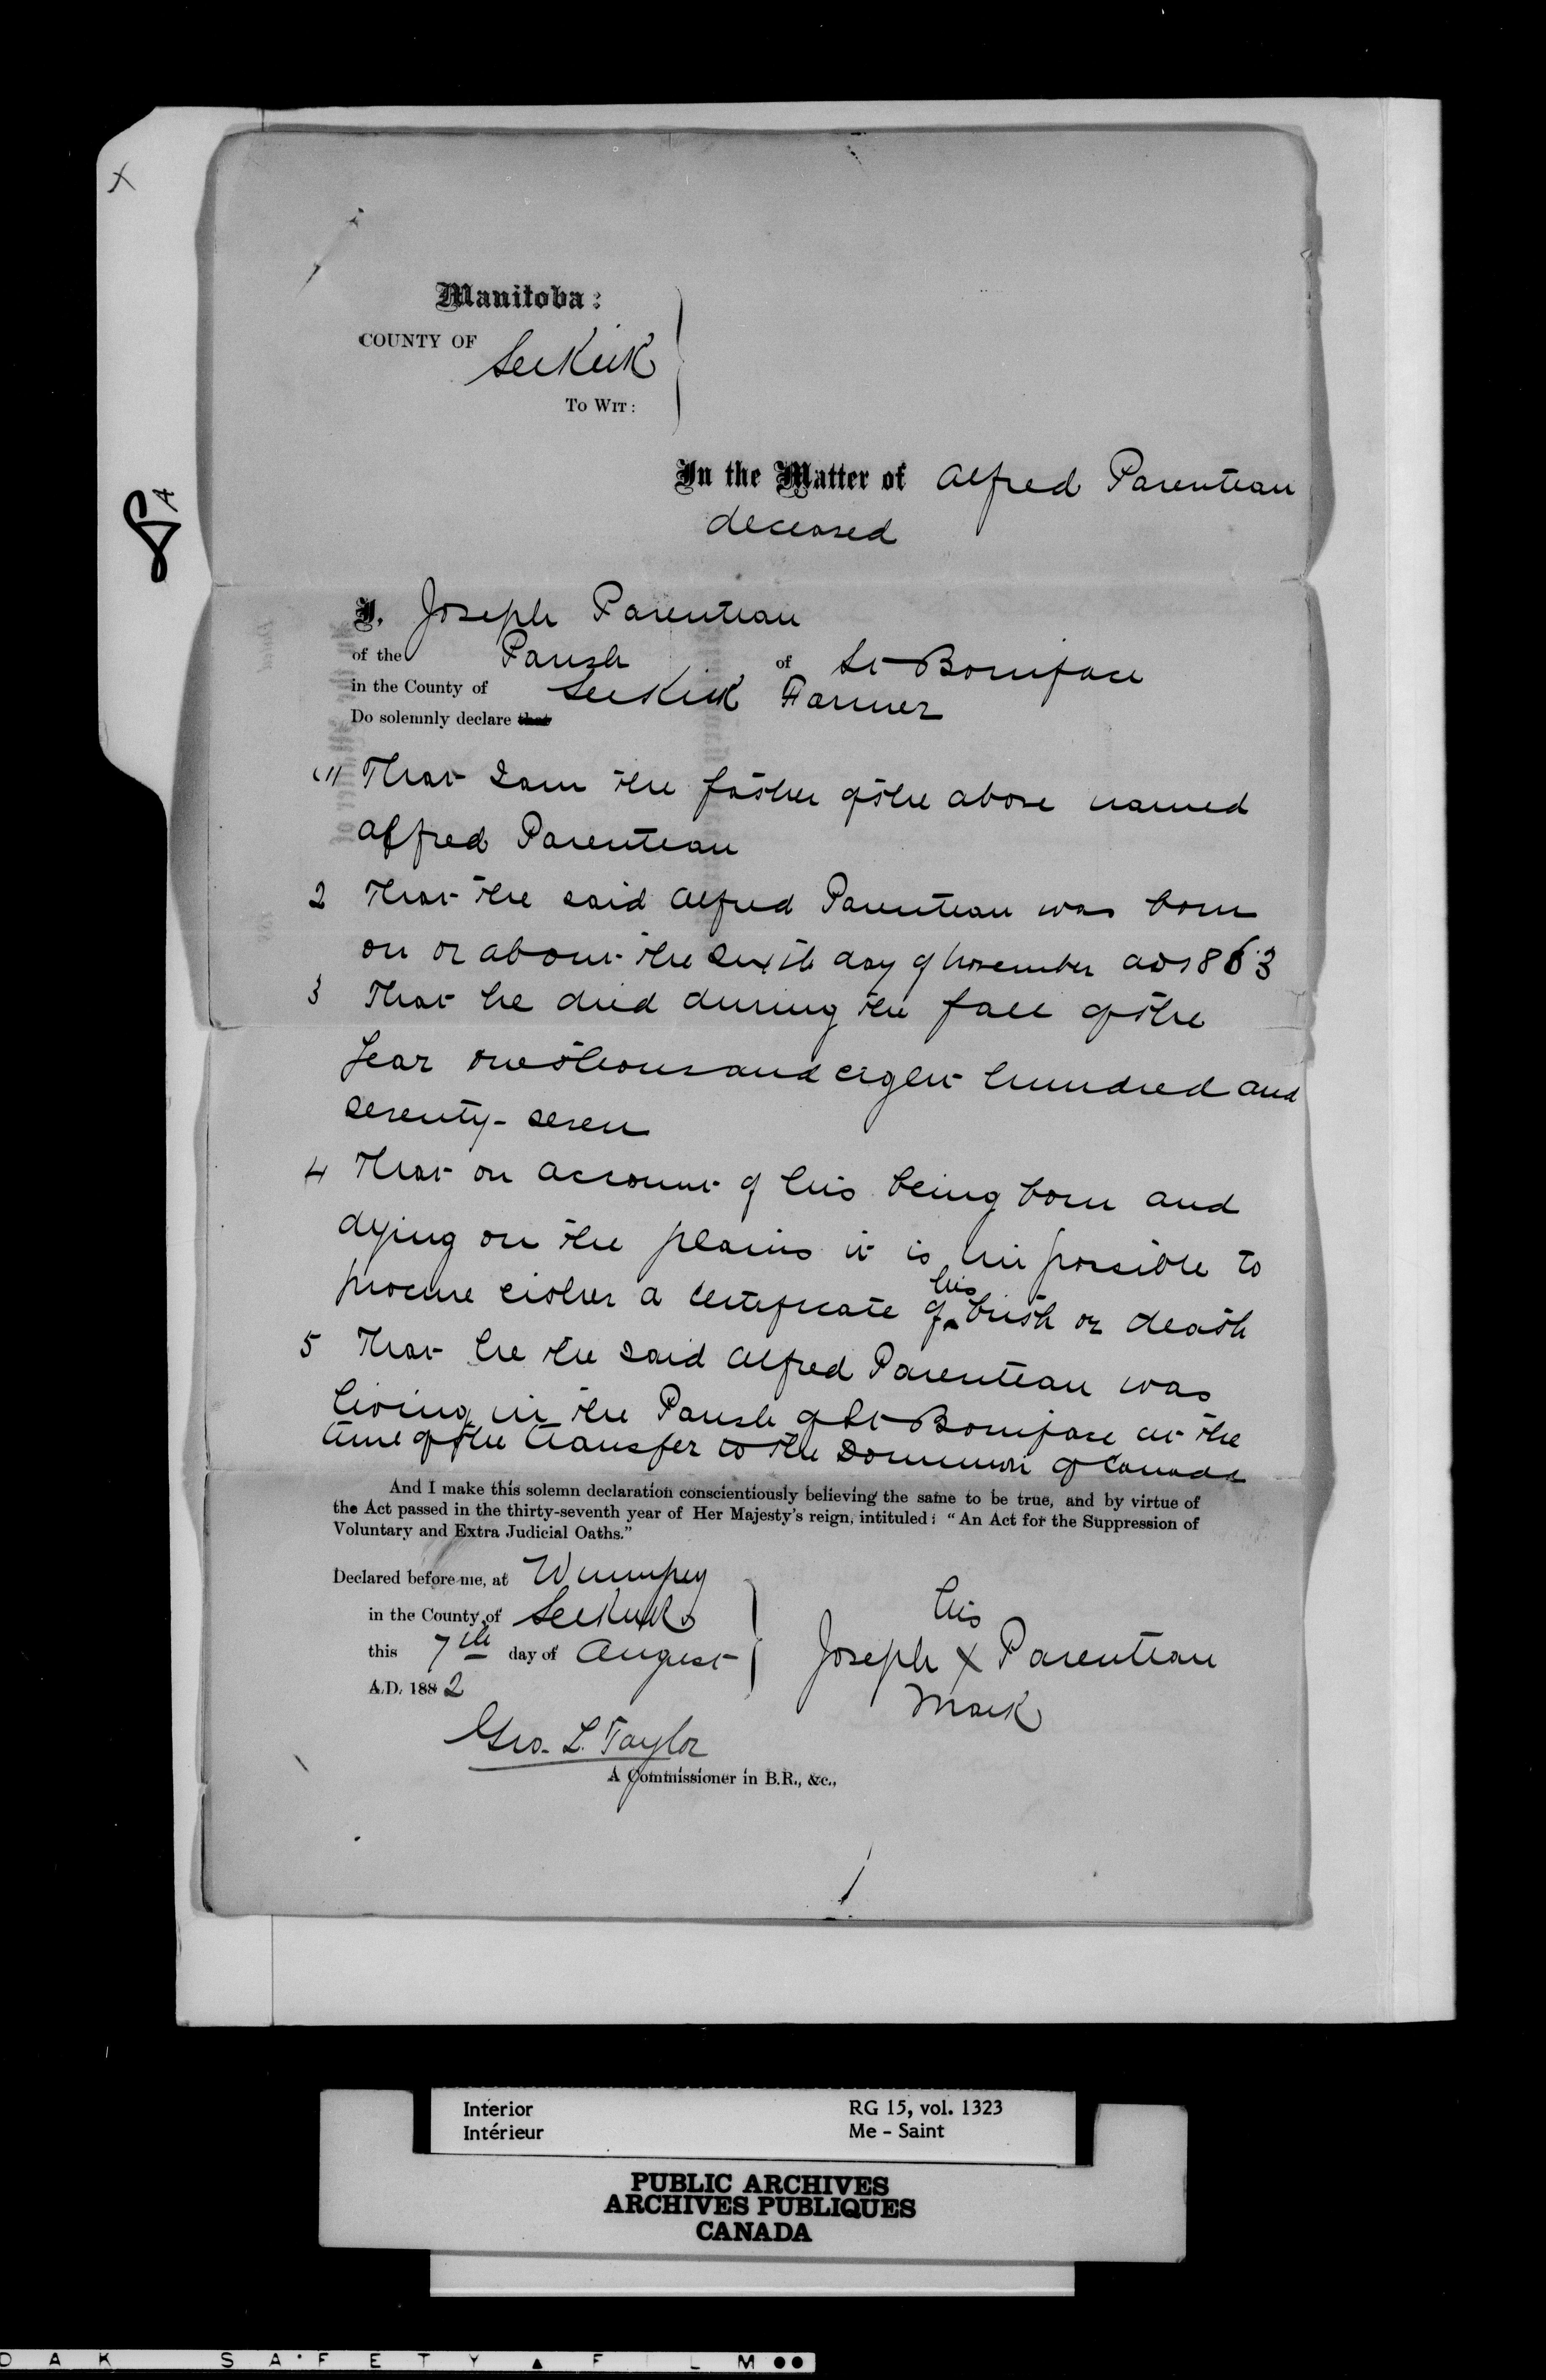 X
Manitoba:
COUNTY OF
Selkirk
TO WIT:
In the Matter of Alfred Parenteau
deceased
I, Joseph Parenteau
of the Parish of St Boniface
in the County of Selkirk Farmer
Do solemnly declare that
(1) That I am the father of the above named
Alfred Parenteau
2 That the said Alfred Parenteau was born
on or about the sixth day of November AD 1863
3 That he died during the fall of the
year one thousand eight hundred and
seventy-seven
4 That on account of his being born and
dying on the plains it is impossible to
procure either a certificate of his birth or death
5 That he the said Alfred Parenteau was
living in the Parish of St Boniface at the
time of the transfer to the Dominion of Canada
And I make this solemn declaration conscientiously believing the same to be true, and by virtue of
the Act passed in the thirty-seventh year of Her Majesty's reign, intituled: "An Act for the Suppression of
Voluntary and Extra Judicial Oaths."
Declared before me, at Winnipeg
in the County of Selkirk
this 7th day of August
A.D. 1882
his
Joseph X Parenteau
Mark
Geo. L. Taylor
A Commissioner in B.R., &c.,
Interior RG 15, vol. 1323
Intérieur Me - Saint
PUBLIC ARCHIVES
ARCHIVES PUBLIQUES
CANADA
DAK SAFETY FILM